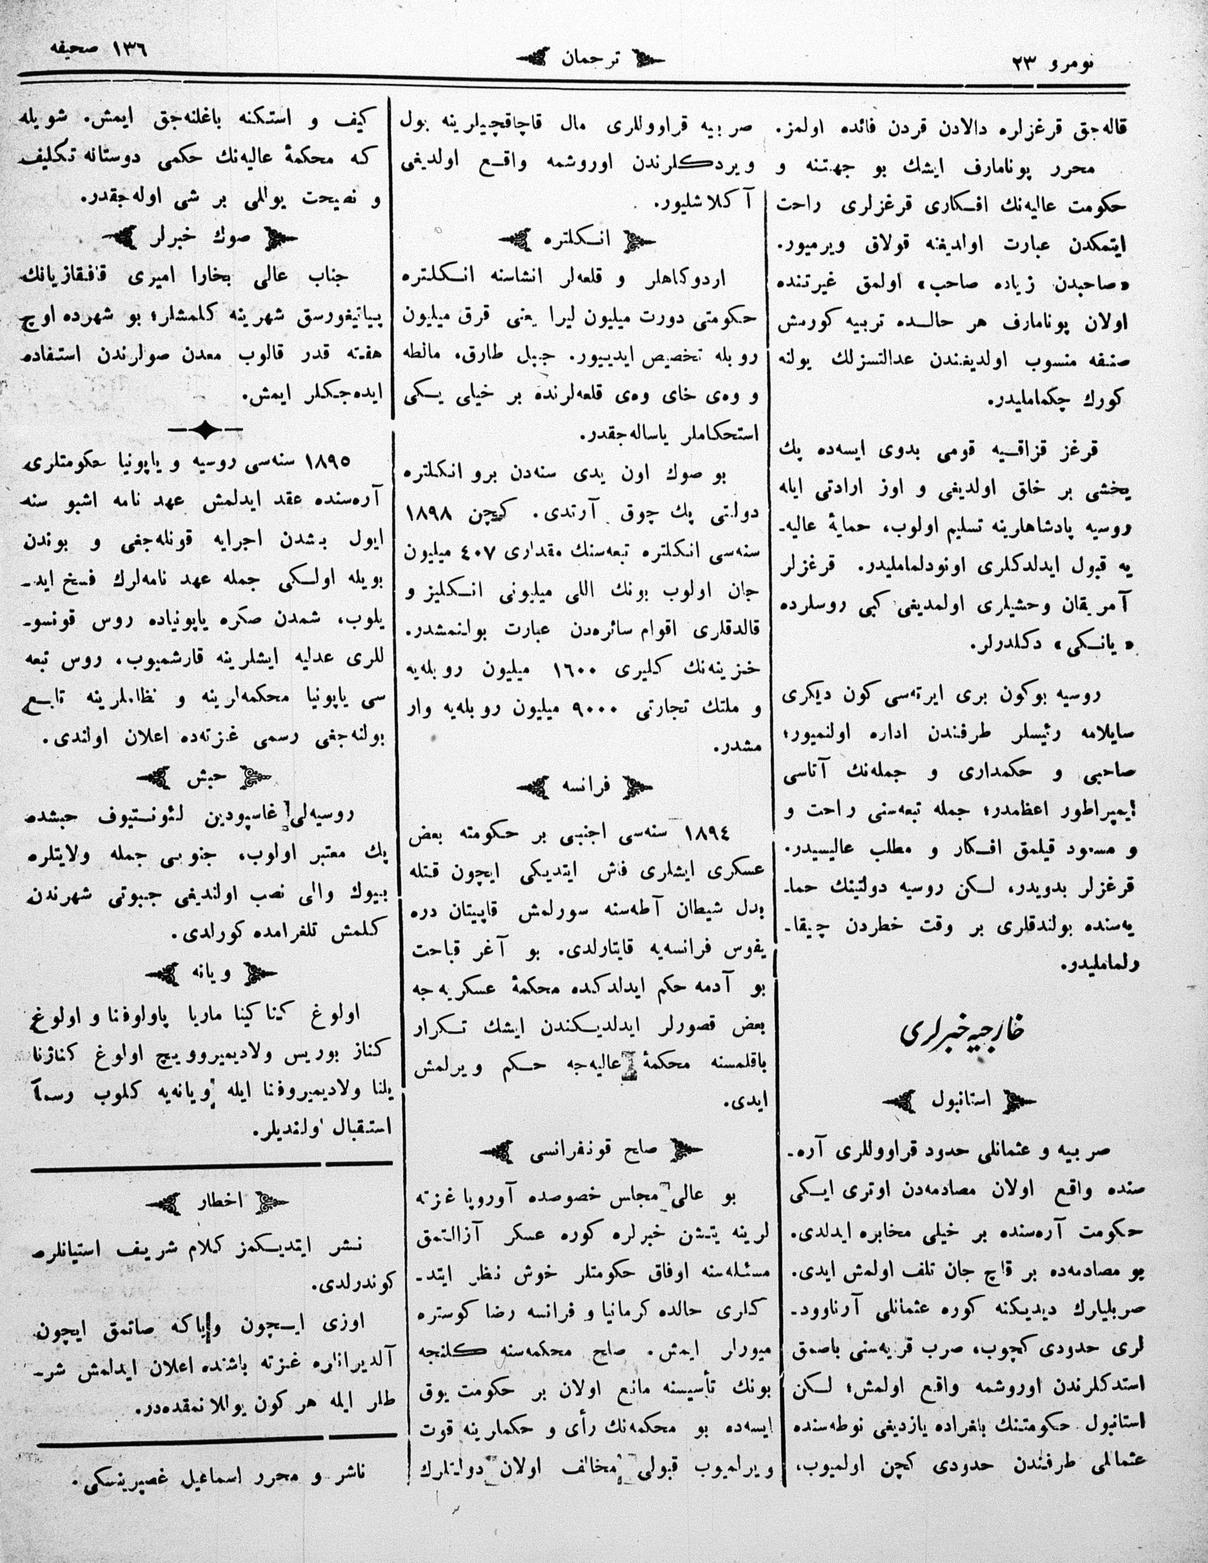 نومرو ٢٣
ترجمان
١٣٦ صحیفه
قاله‌جق قرغزلره دالادن قردن فائده اولمز.
محرر پونامارف ایشك بو جهتنه و
حكومت عالیه‌نك افكاری قرغزلری راحت
ایتمكدن عبارت اولدیغنه قولاق ویرمیور.
«صاحبدن زیاده صاحب» اولمق غیرتنده
اولان پونامارف هر حالده تربیه كورمش
صنفه منسوب اولدیغندن عدالتسزلك یولنه
كورك چكماملیدر.
قرغز قزاقیه قومی بدوی ایسه‌ده پك
یخشی بر خلق اولدیغی و اوز ارادتی ایله
روسیه پادشاهلرینه تسلیم اولوب، حمایۀ عالیه‌ـ
یه قبول ایدلدكلری اونودلماملیدر. قرغزلر
آمریقان وحشیلری اولمدیغی كبی روسلرده
«یانكی» دكلدرلر.
روسیه بوكون بری ایرته‌سی كون دیكری
صایلامه رئیسلر طرفندن اداره اولنمیور؛
صاحبی و حكمداری و جمله‌نك آتاسی
ایمپراطور اعظمدر؛ جمله تبعه‌سنی راحت و
و مسعود قیلمق افكار و مطلب عالیسیدر.
قرغزلر بدویدر، لكن روسیه دولتینك حماـ
یه‌سنده بولندقلری بر وقت خطردن چیقاـ
رلماملیدر.
خارجیه خبرلری
استانبول
صربیه و عثمانلی حدود قراووللری آره‌ـ
سنده واقع اولان مصادمه‌دن اوتری ایكی
حكومت آره‌سنده بر خیلی مخابره ایدلدی.
بو مصادمه‌ده بر قاچ جان تلف اولمش ایدی.
صربلیلرك دیدیكنه كوره عثمانلی آرناوودـ
لری حدودی كچوب، صرب قریه‌سنی باصمق
استدكلرندن اوروشمه واقع اولمش؛ لكن
استانبول حكومتنك بلغراده یازدیغی نوطه‌سنده
عثمانلی طرفندن حدودی كچن اولمیوب،
صربیه قراووللری مال قاچاقچیلرینه یول
ویردكلرندن اوروشمه واقع اولدیغی
آكلاشلیور.
انكلتره
اردوكاهلر و قلعه‌لر انشاسنه انكلتره
حكومتی دورت میلیون لیرا یعنی قرق میلیون
روبله تخصیص ایدییور. جبل طارق، مالطه
و وه‌ی خای وه‌ی قلعه‌لرنده بر خیلی یكی
استحكاملر یاساله‌جقدر.
بو صوك اون یدی سنه‌دن برو انكلتره
دولتی پك چوق آرتدی. كچن ١٨٩٨
سنه‌سی انكلتره تبعه‌سنك مقداری ٤٠٧ میلیون
جان اولوب بونك اللی میلیونی انكلیز و
قالدقلری اقوام سائره‌دن عبارت بولنمشدر.
خزینه‌نك كلیری ١٦٠٠ میلیون روبله‌یه
و ملتك تجارتی ٩٠٠٠ میلیون روبله‌یه وار
مشدر.
فرانسه
١٨٩٤ سنه‌سی اجنبی بر حكومته بعض
عسكری ایشلری فاش ایتدیكی ایچون قتله
بدل شیطان آطه‌سنه سورلمش قاپیتان دره
یفوس فرانسه‌یه قایتارلدی. بو آغر قباحت
بو آدمه حكم ایدلدكده محكمۀ عسكریه‌جه
بعض قصورلر ایدلدیكندن ایشك تكرار
باقلمسنه محكمۀ عالیه‌جه حكم ویرلمش
ایدی.
صلح قونفرانسی
بو عالی مجلس خصوصده آوروپا غزته
لرینه یتشن خبرلره كوره عسكر آزالتمق
مسئله‌سنه اوفاق حكومتلر خوش نظر ایتدـ
كلری حالده كرمانیا و فرانسه رضا كوستره
میورلر ایمش. صلح محكمه‌سنه كلنجه
بونك تأسیسنه مانع اولان بر حكومت یوق
ایسه‌ده بو محكمه‌نك رأی و حكملرینه قوت
ویرلمیوب قبولی مخالف اولان دولتلرك
كیف و استكنه باغلنه‌جق ایمش. شویله
كه محكمۀ عالیه‌نك حكمی دوستانه تكلیف
و نصیحت یوللی بر شی اوله‌جقدر.
صوك خبرلر
جناب عالی بخارا امیری قافقازیانك
پیاتیغورسق شهرینه كلمشلر؛ بو شهرده اوچ
هفته قدر قالوب معدن صولرندن استفاده
ایده‌جكلر ایمش.
١٨٩٥ سنه‌سی روسیه و یاپونیا حكومتلری
آره‌سنده عقد ایدلمش عهد نامه اشبو سنه
ایول بشدن اجرایه قونله‌جغی و بوندن
بویله اولكی جمله عهد نامه‌لرك فسخ ایدـ
یلوب، شمدن صكره یاپونیاده روس قونسوـ
للری عدلیه ایشلرینه قارشمیوب، روس تبعه
سی یاپونیا محكمه‌لرینه و نظاملرینه تابع
بولنه‌جغی رسمی غزته‌ده اعلان اولندی.
حبش
روسیه‌لی غاسپودین لئونتیوف حبشده
پك معتبر اولوب، جنوبی جمله ولایتلره
بیوك والی نصب اولندیغی جیبوتی شهرندن
كلمش تلغرامده كورلدی.
ویانه
اولوغ كیناكینا ماریا پاولوفنا و اولوغ
كناز بوریس ولادیمیروویچ اولوغ كناژنا
یلنا ولادیمیروفنا ایله ویانه‌یه كلوب رسماً
استقبال اولندیلر.
اخطار
نشر ایتدیكمز كلام شریف استیانلره
كوندرلدی.
اوزی ایچون ویاكه صاتمق ایچون
آلدیرانلره غزته باشنده اعلان ایدلمش شرـ
طلر ایله هر كون یوللانمقده‌در.
ناشر و محرر اسماعیل غصپرینسكی.